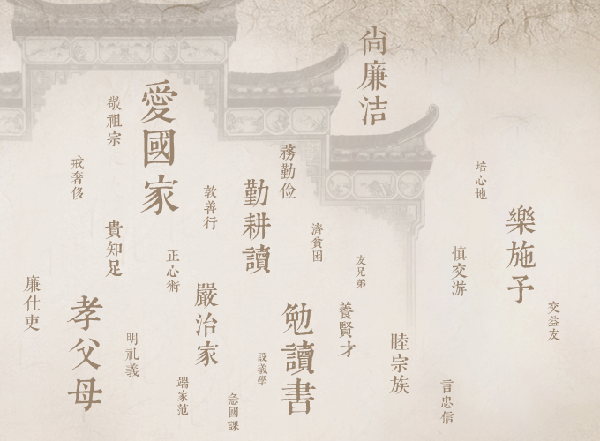 尚廉洁
愛國家
敬祖宗
戒奢侈
務勤儉
勤耕讀
敦善行
培心地
樂施予
貴知足
濟貧困
正心術
友兄弟
慎交游
廉仕吏
孝父母
嚴治家
勉讀書
養賢才
交益友
明礼義
睦宗族
設義學
端家范
急國課
言忠信